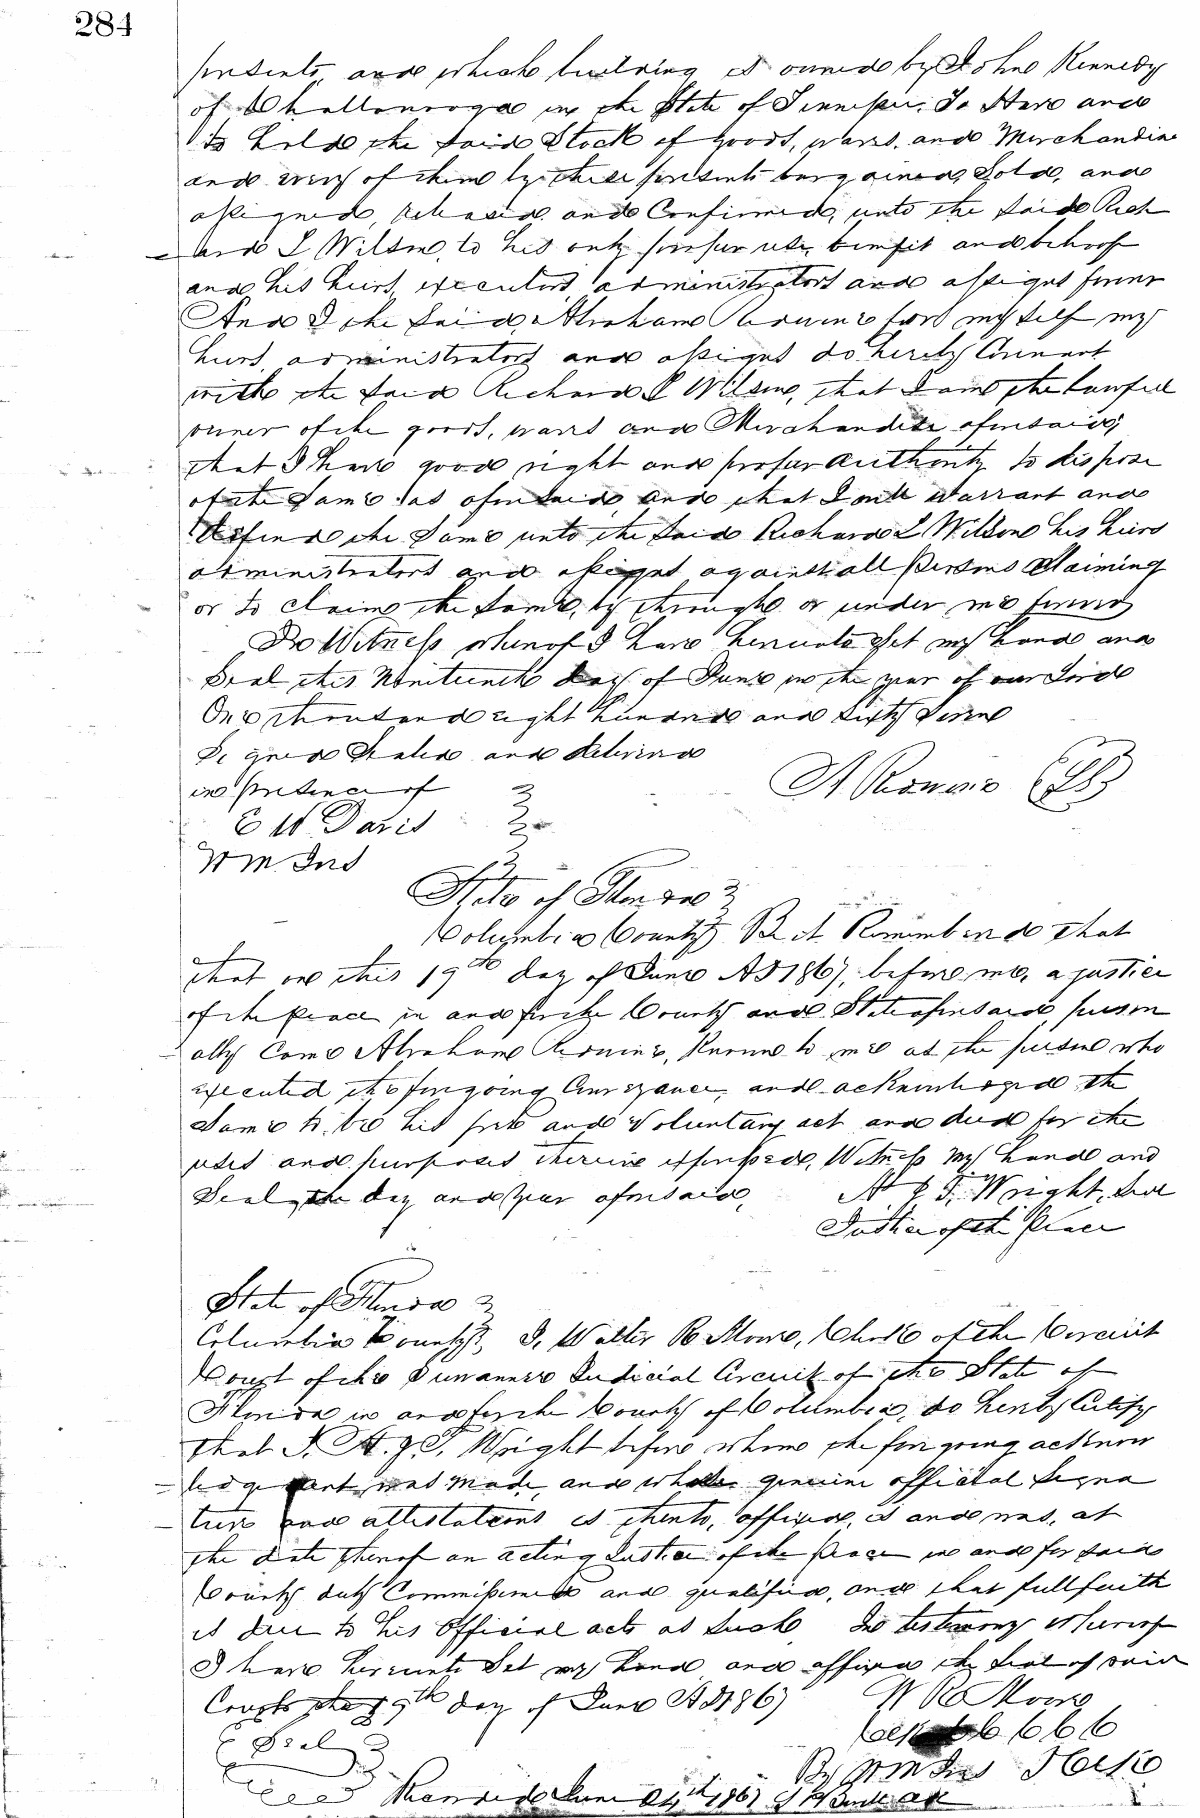 284
presents, and which building is owned by John Kennedy
of Chattanooga in the State of Tennessee. To Have and
to hold the said Stock of goods, wares, and Merchandise
and every of them by these presents bargained, Sold, and
assigned, released and Confirmed, unto the said Rich
ard L Wilson, to his only proper use, benefit and behoof
and his heirs, executors, administrators and assigns forever
And I the said Abraham for myself my
heirs, administrators and assigns do hereby Covenant
with the said Richard L Wilson, that I am the lawful
owner of the goods, wares and Merchandise aforesaid,
that I have good right and proper authority to dispose
of the same as aforesaid, and that I will warrant and
defend the same unto the said Richard L Wilson his heirs
administrators and assigns against all persons Claiming
or to claim the same, by through or under me forever
In Witness whereof I have hereunto Set my hand and
Seal this Nineteenth day of June in the year of our Lord
One thousand eight hundred and Sixty Seven
Signed Sealed and delivered
in presence of
A (LS)
E W Davis
Wm Ives
State of Florida
Columbia County Be it Remembered that
that on this 19th day of June AD 1867, before me, a justice
of the peace in and for the County and State aforesaid, person
ally Came Abraham Known to me as the person who
executed the foregoing Conveyance, and acknowledged the
Same to be his free and Voluntary act and deed for the
uses and purposes therein expressed, Witness My hand and
Seal the day and year aforesaid, A J T. Wright, Seal
Justice of the Peace
State of Florida
Columbia County, I, Walter R Moore, Clerk of the Circuit
Court of the Suwannee Judicial Circuit of the State of
Florida in and for the County of Columbia, do hereby Certify
that A. J. T. Wright before whom the foregoing acknow
ledgment was made, and whose genuine official Signa
ture and attestations is thereto, affixed, is and was, at
the date thereof an acting Justice of the Peace in and for said
County duly Commissioned and qualified, and that full faith
is due to his Official acts as Such In testimony whereof
I have hereunto Set my hand and affixed the Seal of said
Court the 19th day of June AD 1867 W R Moore
Seal
By Wm Ives
Recorded June 24th 1867